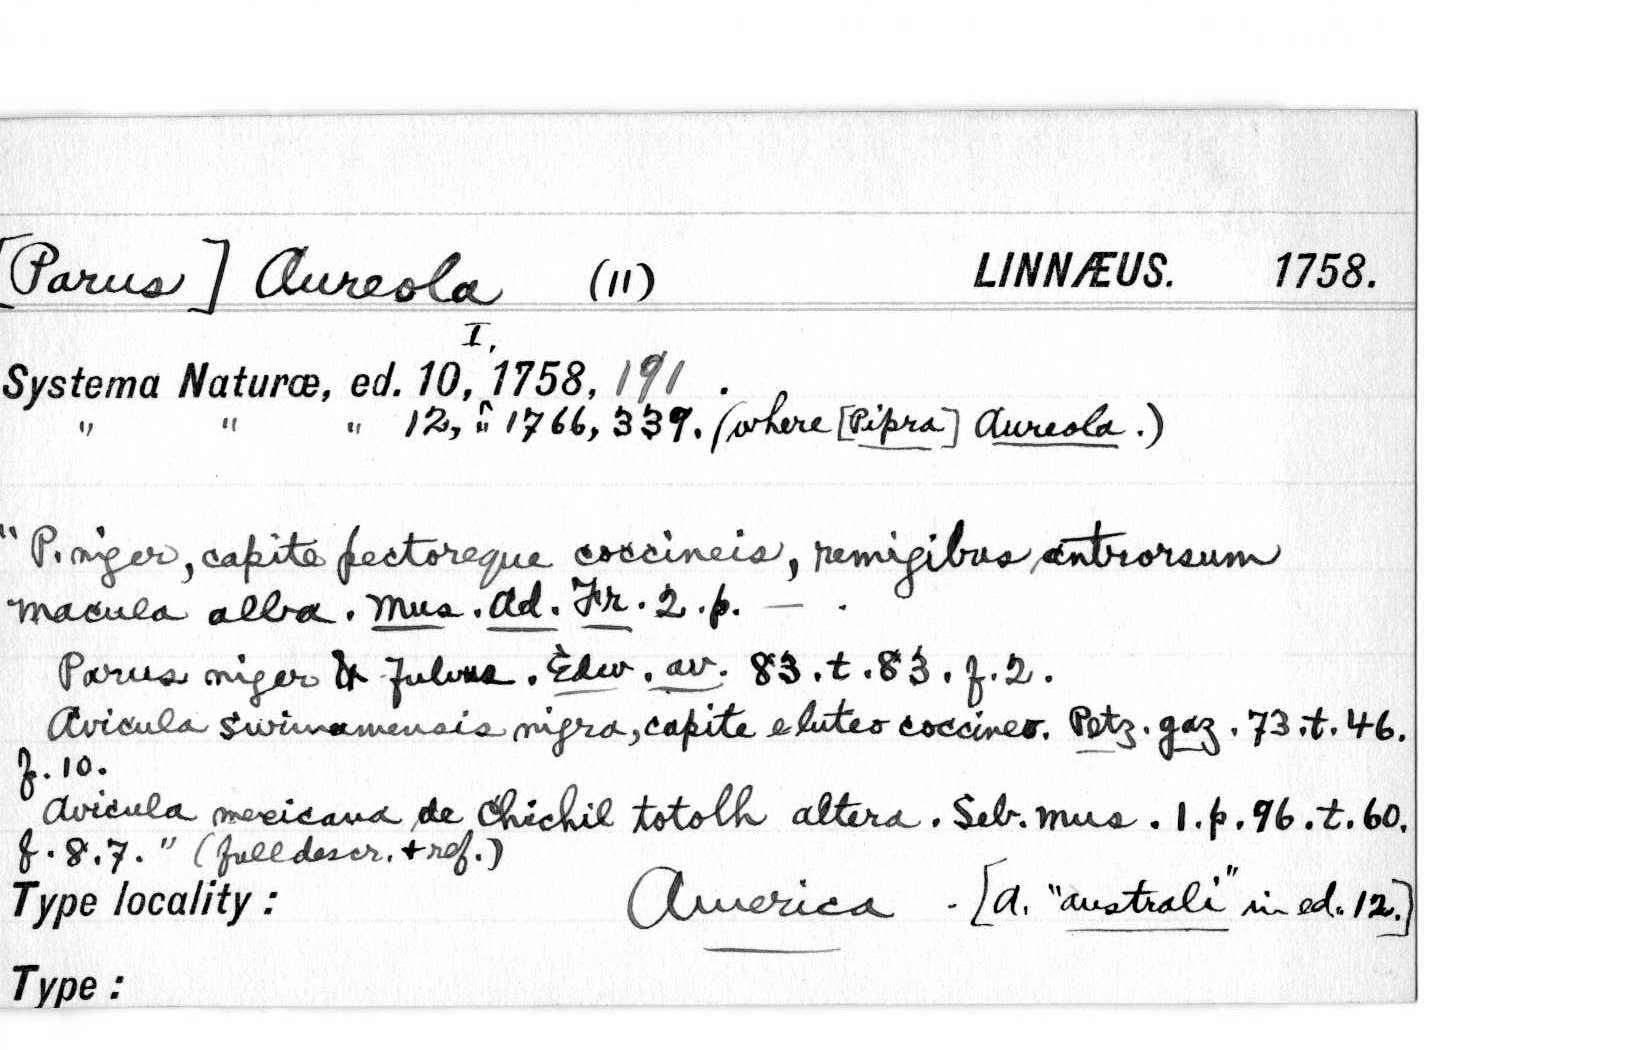 [Parus] Aureola (11) LINNÆUS. 1758.
I,
Systema Naturæ, ed. 10, 1758, 191 .
" " " 12, " 1766, 339. (where [Pipra] Aureola.)
"P. niger, capite pectoreque coccineis, remigibus antrorsum
macula alba. Mus. Ad. Fr. 2. p. — .
Parus niger & fulvus. Edw. av. 83. t. 83. f. 2.
Avicula surinamensis nigra, capite e luteo coccineo. Petz. gaz. 73. t. 46.
f. 10.
Avicula mexicana de Chichil totolh altera. Seb. mus. 1. p. 96. t. 60.
f. 8. 7." (full descr. + ref.)
Type locality: America - [A. "australi" in ed. 12.]
Type: